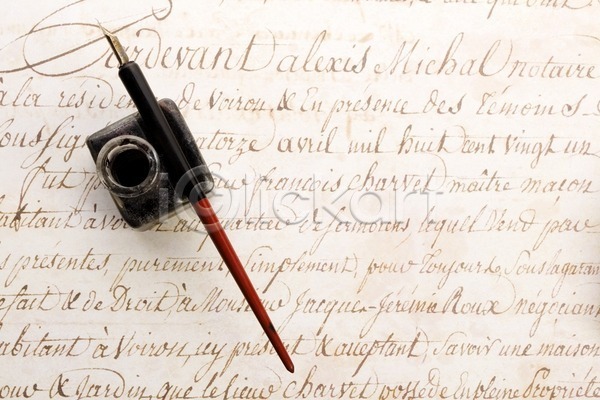 que
Pardevant alexis Michal notaire
à la résiden de Voiron, & En présence des Témoins S-
oussig atorze avril mil huit cent vingt un
fut p Sieur françois Charvet maître maçon
abitant à Voi au quartier de sermorens, lequel vend par
s présentes, purement & simplement, pour Toujours, Sous la garan
efait & de Droit, à Monsieur Jacques-Jérémie Roux négociant
abitant à Voiron, icy présent & acceptant, Savoir une maison
& Jardin, que le sieur Charvet possède En pleine Propriété
iclickart